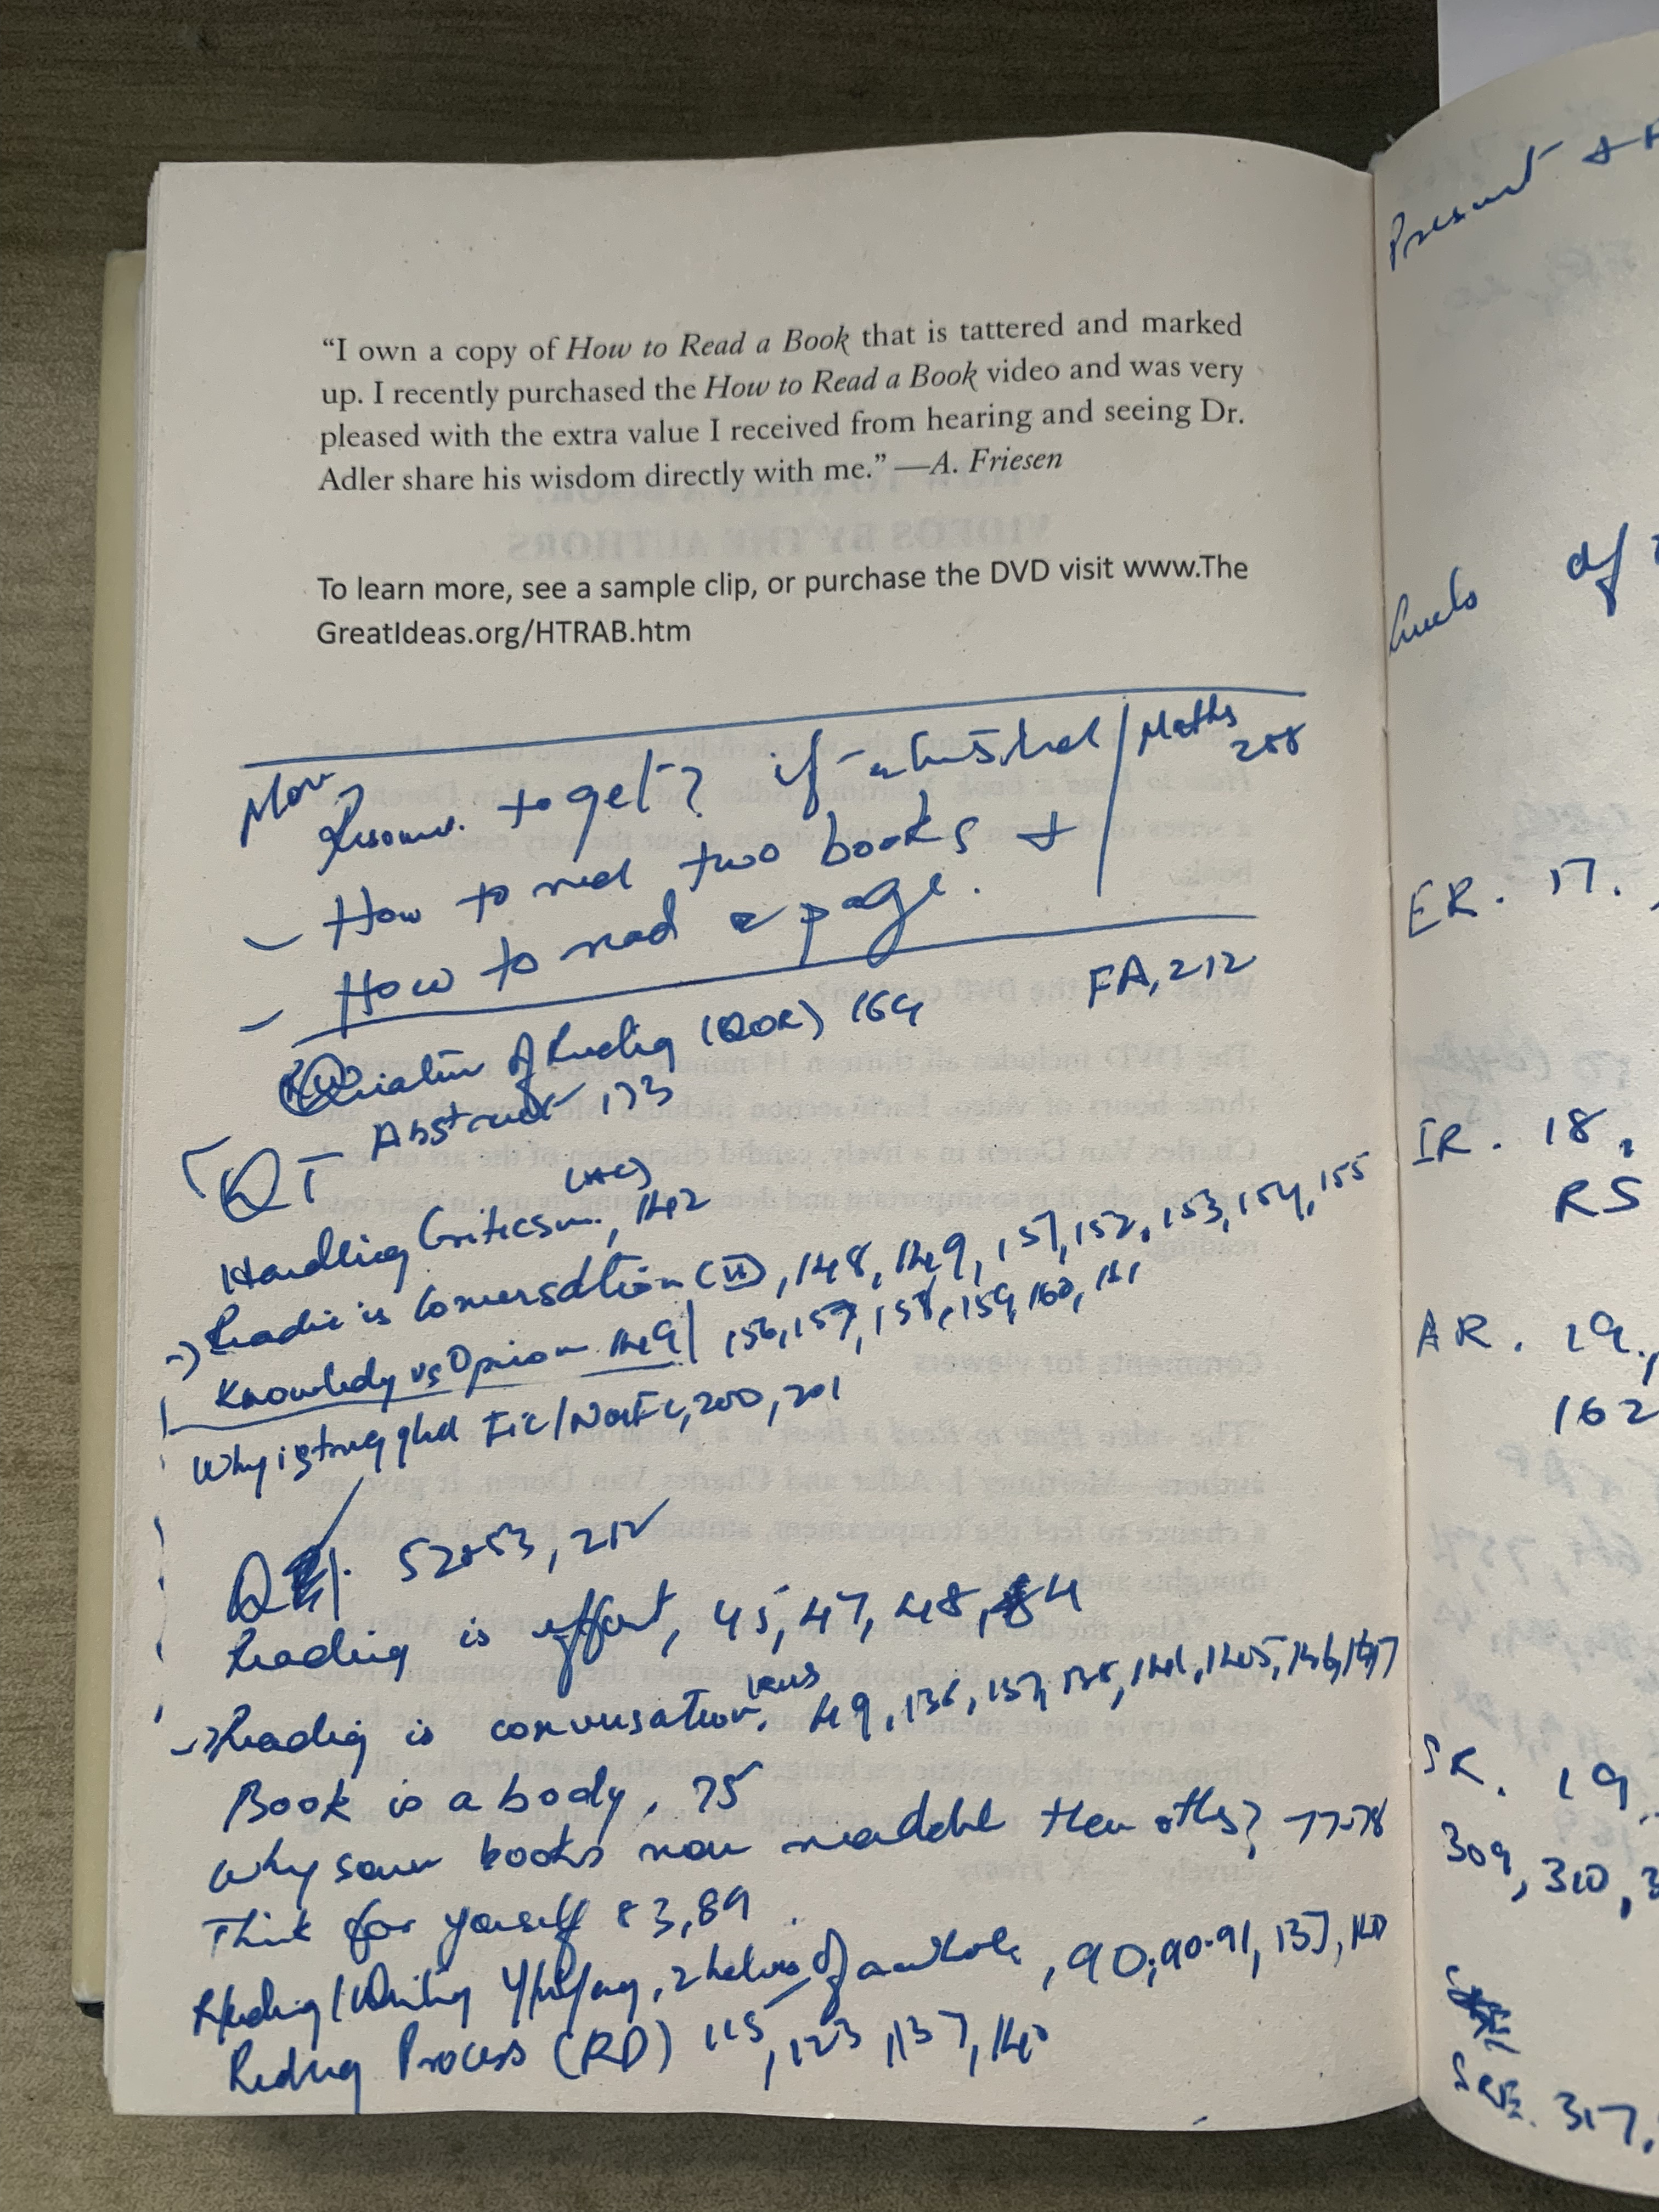 “I own a copy of How to Read a Book that is tattered and marked
up. I recently purchased the How to Read a Book video and was very
pleased with the extra value I received from hearing and seeing Dr.
Adler share his wisdom directly with me.” —A. Friesen
To learn more, see a sample clip, or purchase the DVD visit www.The
GreatIdeas.org/HTRAB.htm
to get? if
Maths
- How to read two books +
- How to read a page.
FA, 212
of Reading (QOR) 164
Abstract 173
QT
Handling Criticsm, 142
Readig is Conversation (II), 148, 149, 151, 152, 153, 154, 155
Knowledg vs Opinion 149 | 156, 157, 158, 159, 160, 161
Why i struggled Fic/NonFic, 200, 201
52-53, 212
Reading is effort, 45, 47, 48,
Readig is conversation, 49, 136, 137, 138, 141, 145, 146, 147
Book is a body, 75
Why some books more readable than others? 77-78
Think for yourself 83, 89
Reading/Writing 2 halves of a whole, 90, 90-91, 137, 140
Reding Process (RP) 115, 123, 137, 140
Present
of
ER. 17.
IR. 18,
RS
AR. 19,
162
SR. 19
309, 310, 3
317,